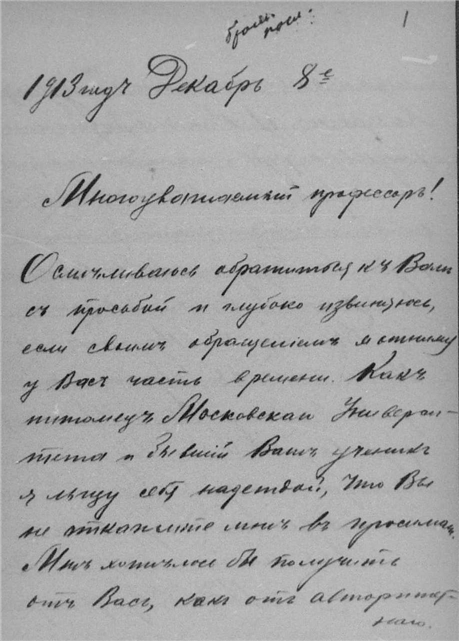 1
1913 годъ Декабрь 8е
Многоуважаемый профессоръ!
Осмѣливаюсь обратиться къ Вамъ
съ просьбой и глубоко извиняюсь,
если своимъ обращеніемъ я отниму
у Васъ часть времени. Какъ
питомецъ Московскаго Универси-
тета и бывшій Вашъ ученикъ
я льщу себя надеждой, что Вы
не откажите мнѣ въ
Мнѣ хотѣлось бы получить
отъ Васъ, какъ отъ авторитет-
наго.